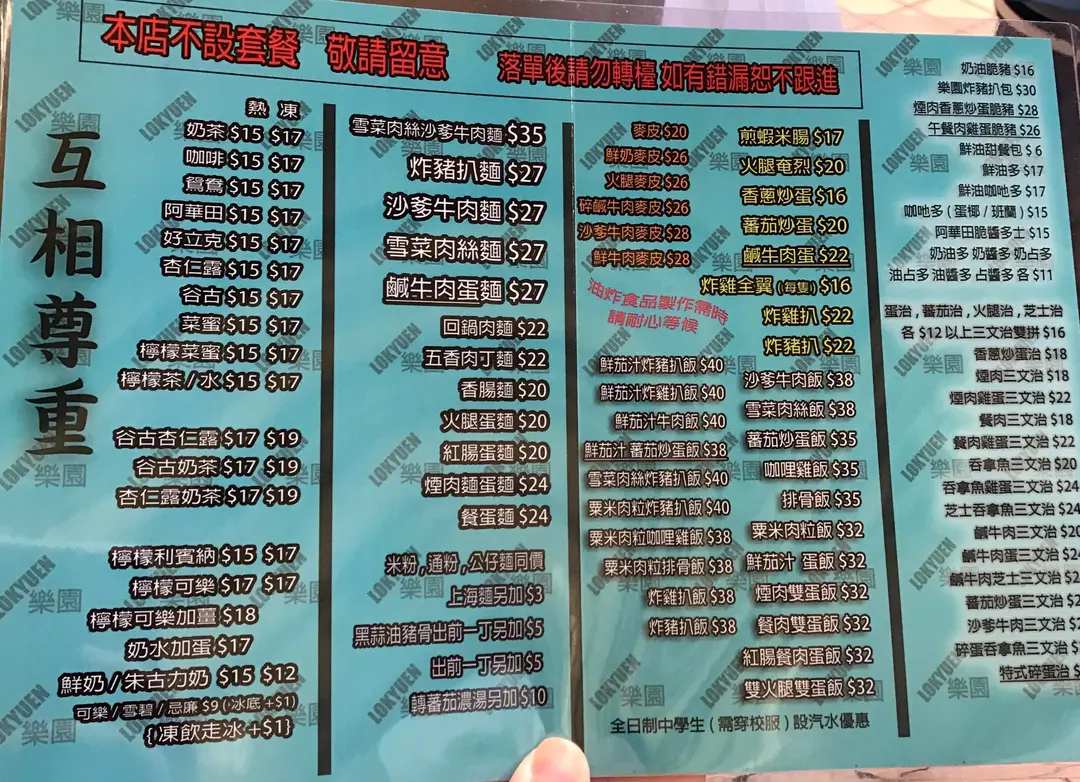 本店不設套餐 敬請留意 落單後請勿轉檯 如有錯漏恕不跟進
互相尊重
熱 凍
奶茶 $15 $17
咖啡 $15 $17
鴛鴦 $15 $17
阿華田 $15 $17
好立克 $15 $17
杏仁露 $15 $17
谷古 $15 $17
菜蜜 $15 $17
檸檬菜蜜 $15 $17
檸檬茶/水 $15 $17
谷古杏仁露 $17 $19
谷古奶茶 $17 $19
杏仁露奶茶 $17 $19
檸檬利賓納 $15 $17
檸檬可樂 $17 $17
檸檬可樂加薑 $18
奶水加蛋 $17
鮮奶/朱古力奶 $15 $12
可樂/雪碧/忌廉 $9 (冰底+$1)
{凍飲走冰+$1}
雪菜肉絲沙爹牛肉麵 $35
炸豬扒麵 $27
沙爹牛肉麵 $27
雪菜肉絲麵 $27
鹹牛肉蛋麵 $27
回鍋肉麵 $22
五香肉丁麵 $22
香腸麵 $20
火腿蛋麵 $20
紅腸蛋麵 $20
煙肉麵蛋麵 $24
餐蛋麵 $24
米粉,通粉,公仔麵同價
上海麵另加 $3
黑蒜油豬骨出前一丁另加 $5
出前一丁另加 $5
轉蕃茄濃湯另加 $10
麥皮 $20
鮮奶麥皮 $26
火腿麥皮 $26
碎鹹牛肉麥皮 $26
沙爹牛肉麥皮 $28
鮮牛肉麥皮 $28
油炸食品製作需時
請耐心等候
煎蝦米腸 $17
火腿奄烈 $20
香蔥炒蛋 $16
蕃茄炒蛋 $20
鹹牛肉蛋 $22
炸雞全翼(每隻) $16
炸雞扒 $22
炸豬扒 $22
鮮茄汁炸豬扒飯 $40
鮮茄汁炸雞扒飯 $40
鮮茄汁牛肉飯 $40
鮮茄汁 蕃茄炒蛋飯 $38
雪菜肉絲炸豬扒飯 $40
粟米肉粒炸豬扒飯 $40
粟米肉粒咖喱雞飯 $38
粟米肉粒排骨飯 $38
炸雞扒飯 $38
炸豬扒飯 $38
沙爹牛肉飯 $38
雪菜肉絲飯 $38
蕃茄炒蛋飯 $35
咖哩雞飯 $35
排骨飯 $35
粟米肉粒飯 $32
鮮茄汁 蛋飯 $32
煙肉雙蛋飯 $32
餐肉雙蛋飯 $32
紅腸餐肉蛋飯 $32
雙火腿雙蛋飯 $32
全日制中學生(需穿校服)設汽水優惠
奶油脆豬 $16
樂園炸豬扒包 $30
煙肉香蔥炒蛋脆豬 $28
午餐肉雞蛋脆豬 $26
鮮油甜餐包 $6
鮮油多 $17
鮮油咖吔多 $17
咖吔多(蛋椰/班蘭) $15
阿華田脆醬多士 $15
奶油多 奶醬多 奶占多
油占多 油醬多 占醬多 各 $11
蛋治,蕃茄治,火腿治,芝士治
各 $12 以上三文治雙拼 $16
香蔥炒蛋治 $18
煙肉三文治 $18
煙肉雞蛋三文治 $22
餐肉三文治 $18
餐肉雞蛋三文治 $22
吞拿魚三文治 $20
吞拿魚雞蛋三文治 $24
芝士吞拿魚三文治 $24
鹹牛肉三文治 $20
鹹牛肉蛋三文治
鹹牛肉芝士三文治
蕃茄炒蛋三文治
沙爹牛肉三文治
碎蛋吞拿魚三文治
特式碎蛋治
LOKYUEN 樂園